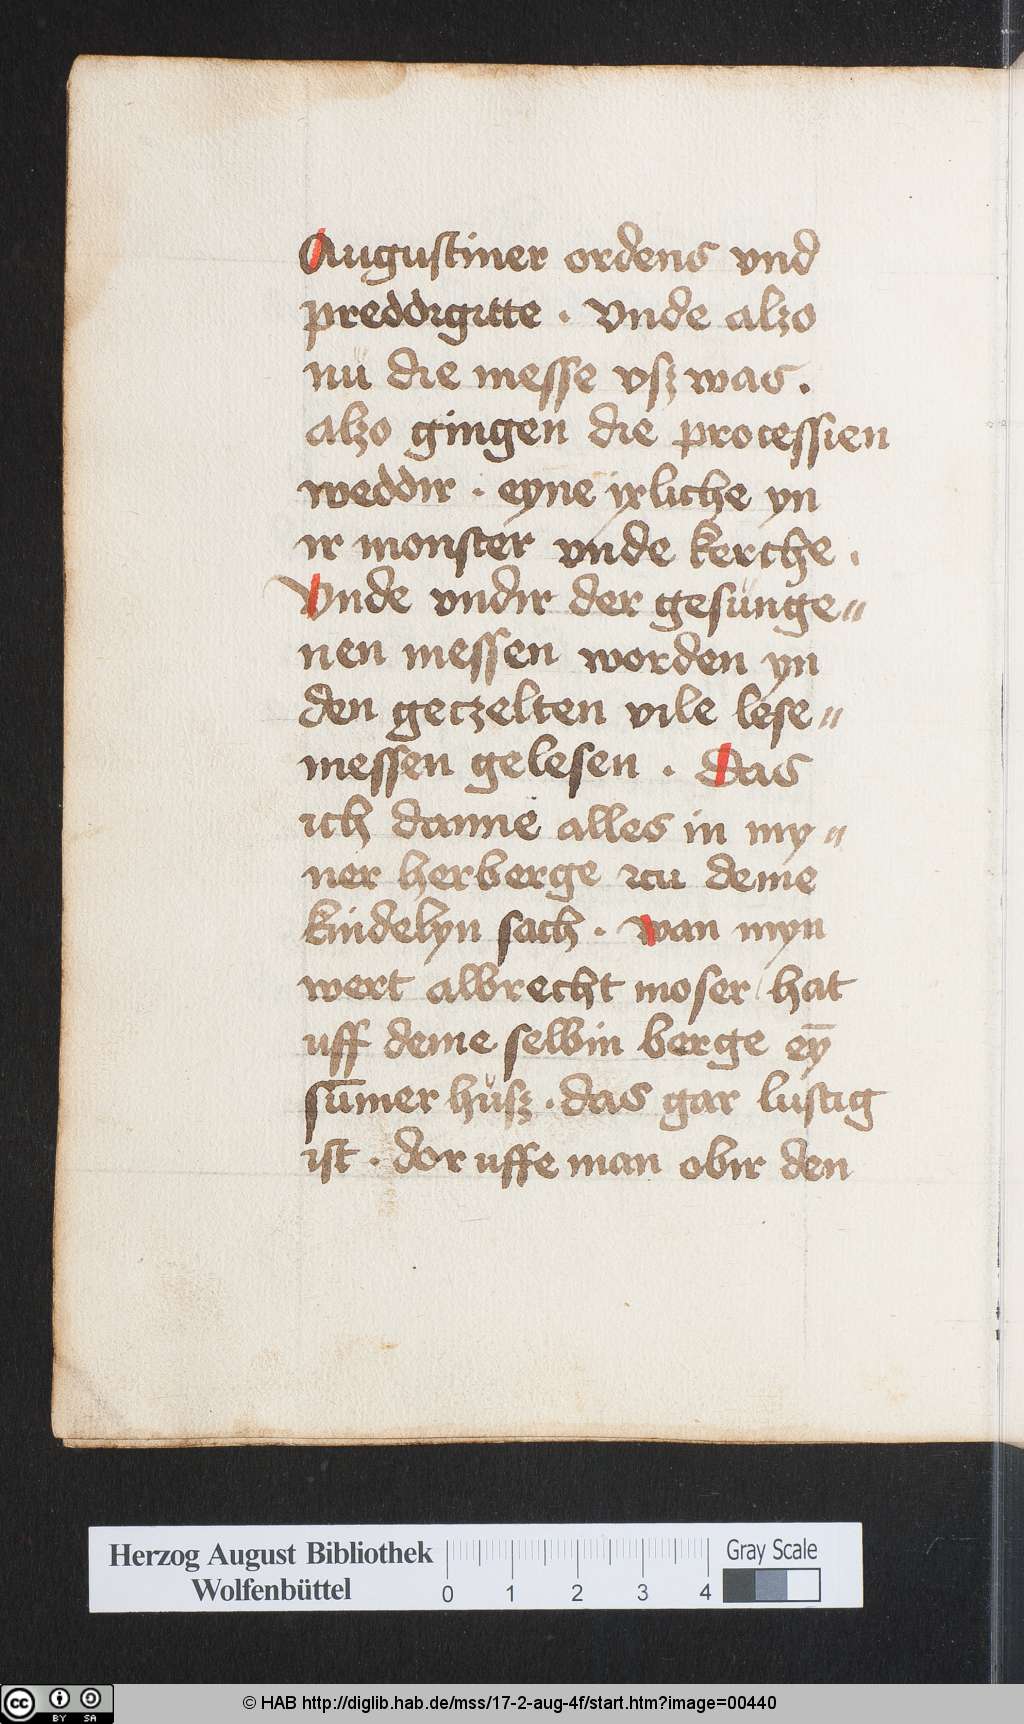 Augustiner ordens vnd
preddigitte . Vnde alzo
nü die messe vsz was .
alzo gingen die processien
weddir . eyne ixliche yn
ir monster vnde kerche .
Vnde vndir der gesünge〃
nen messen worden yn
den geczelten vile lese〃
messen gelesen . Das
ich danne alles in my〃
ner herberge zcu deme
kindelyn sach . wan myn
wert albrecht moser hat
uff deme selbin berge eȳ
sūmer hüsz . das gar lustig
ist . dor uffe man obir den
Herzog August Bibliothek
Wolfenbüttel
0 1 2 3 4
Gray Scale
cc BY SA
© HAB http://diglib.hab.de/mss/17-2-aug-4f/start.htm?image=00440